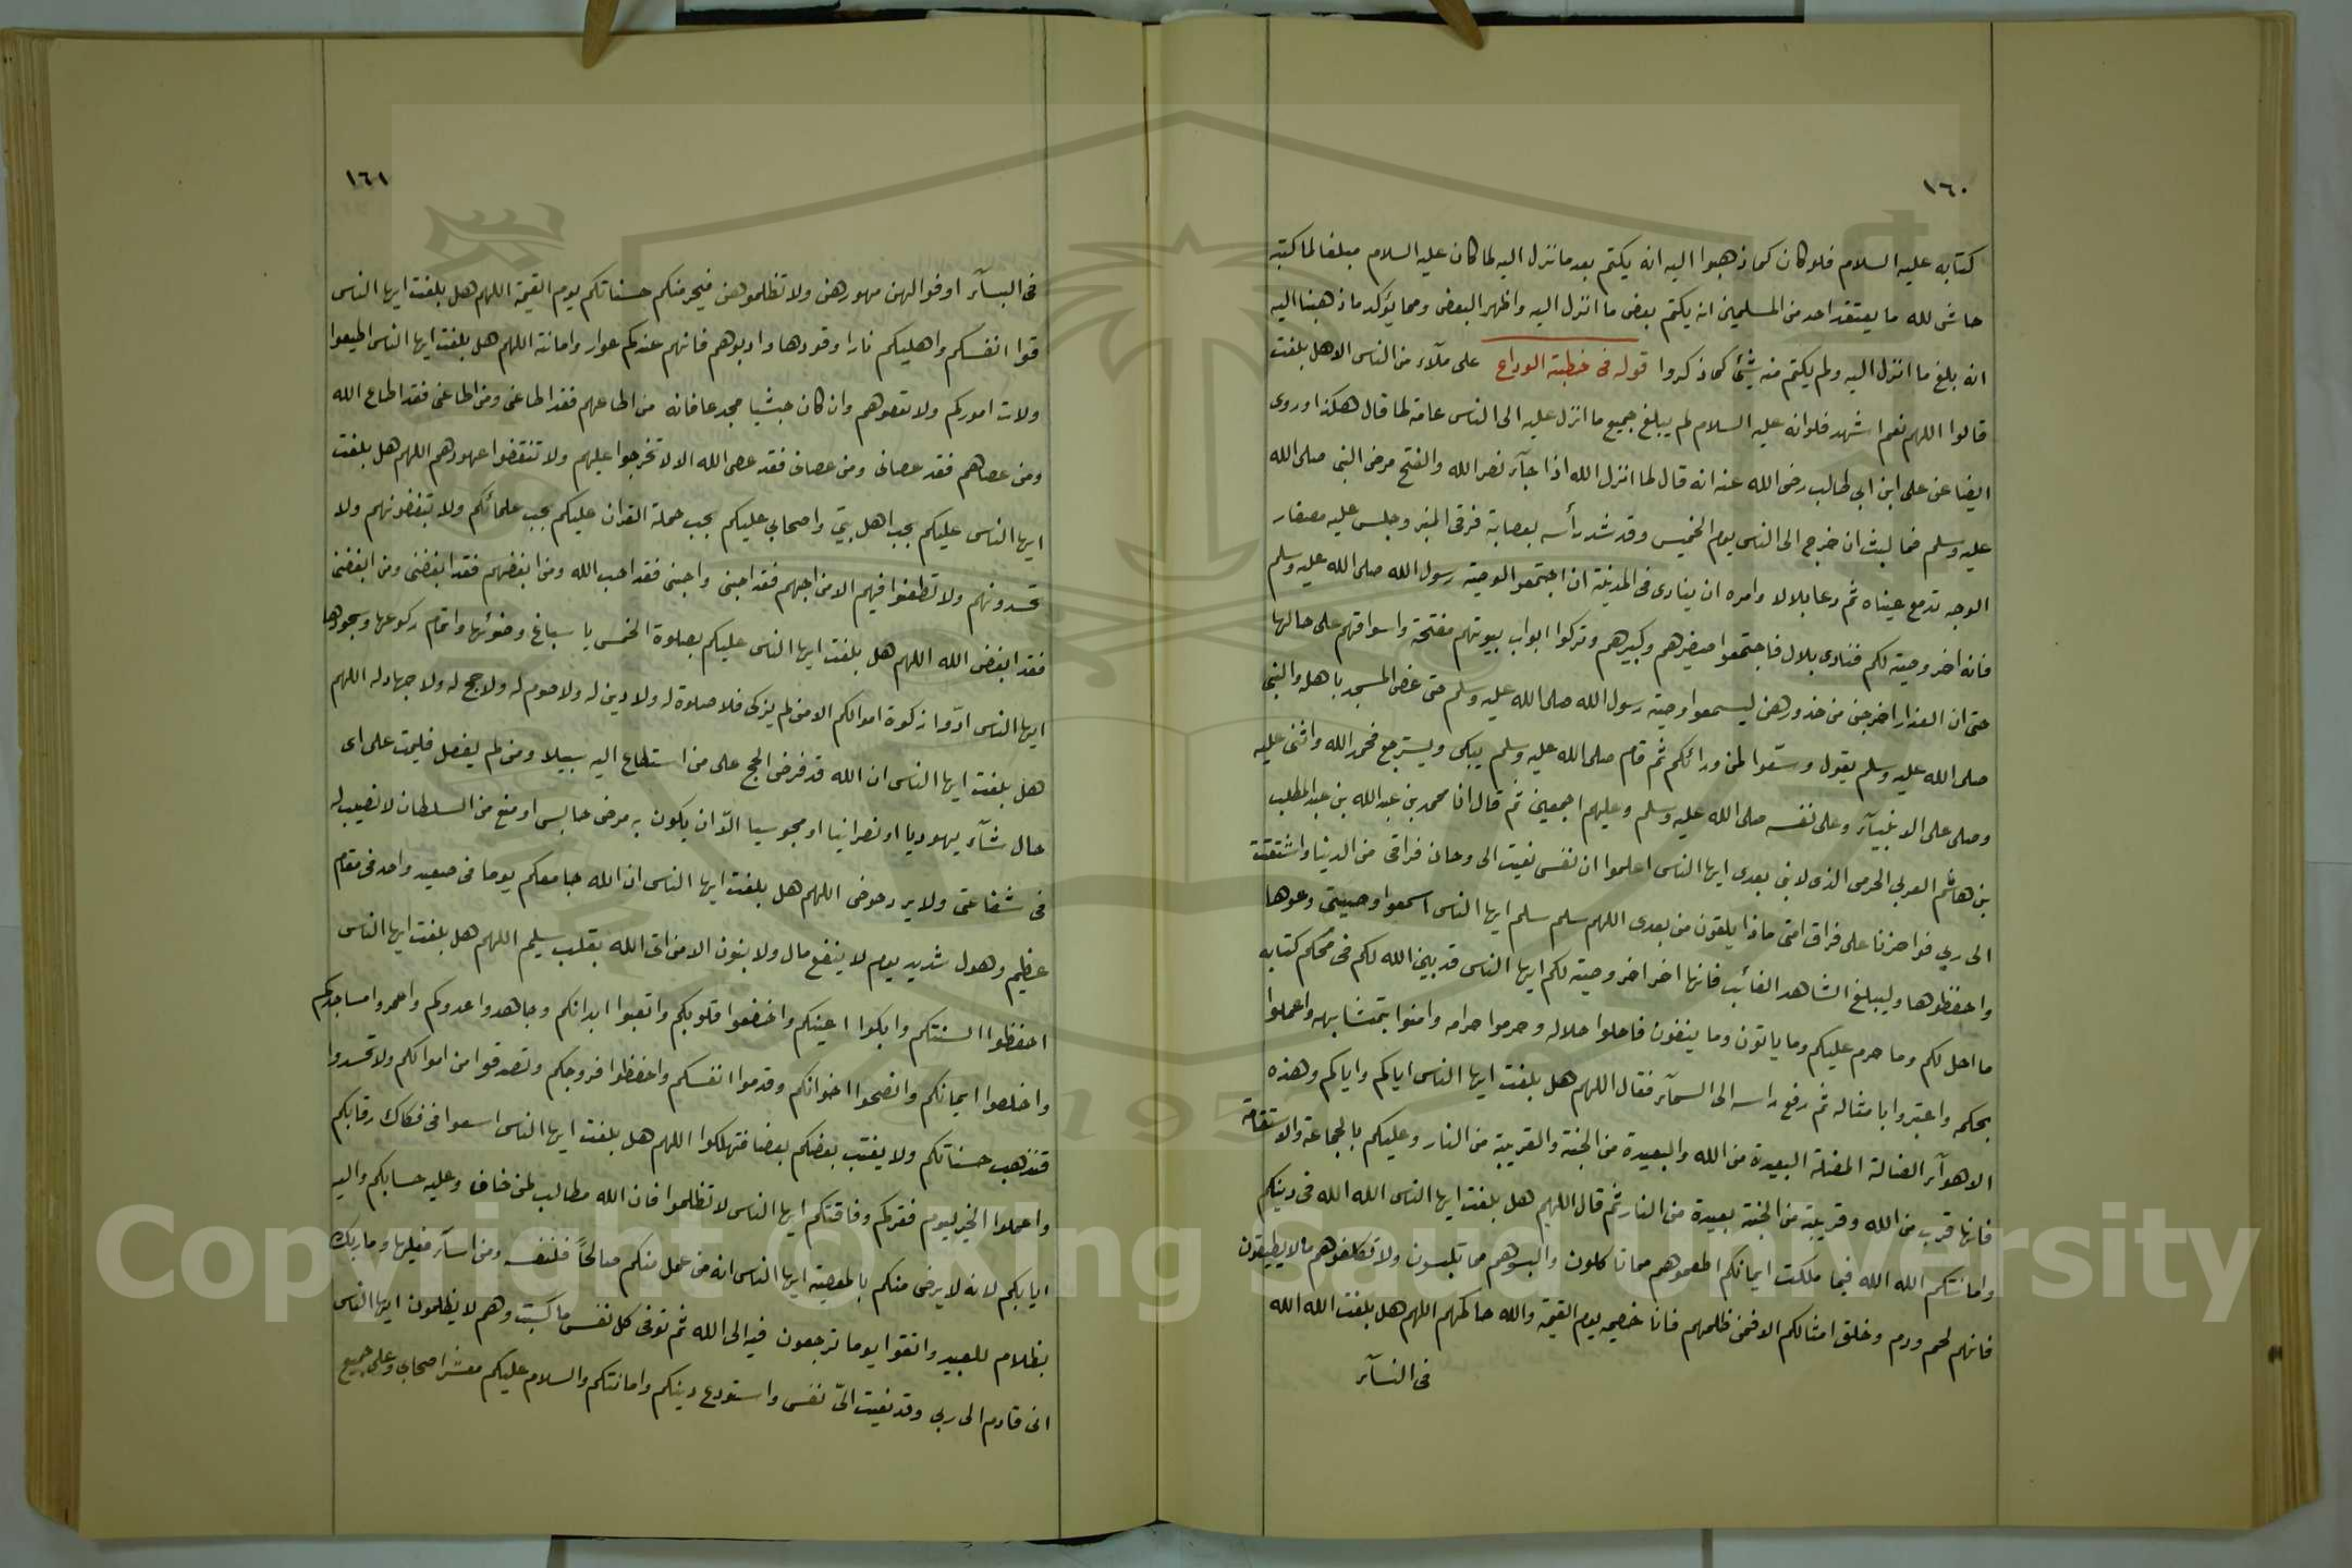 ١٦٠
كتابه عليه السلام فلو كان كما ذهبوا اليه انه يكتم بعد ما نزل اليه لما كان عليه السلام مبلغا لما كتبه
حاش لله ما يعتقد احد من المسلمين انه يكتم بعض ما انزل اليه واظهر البعض ومما يؤكد ما ذهبنا اليه
انه بلغ ما انزل اليه ولم يكتم منه شيئا كما ذكروا قوله فى خطبته الوداع على ملآء من الناس الا هل بلغت
قالوا اللهم نعم اشهد فلو انه عليه السلام لم يبلغ جميع ما انزل عليه الى الناس عامة لما قال هكذا وروى
ايضا عن على ابن ابي طالب رضى الله عنه انه قال لما انزل الله اذا جآء نصر الله والفتح مرض النبى صلى الله
عليه وسلم فما لبث ان خرج الى الناس يوم الخميس وقد شد رأسه بعصابة فرقى المنبر وجلس عليه مصفار
الوجه تدمع عيناه ثم دعا بلالا وامره ان ينادى فى المدينة ان اجتمعوا لوصية رسول الله صلى الله عليه وسلم
فانه اخر وصيته لكم فنادى بلال فاجتمعوا صغيرهم وكبيرهم وتركوا ابواب بيوتهم مفتحة واسواقهم على حالها
حتى ان العذارا خرجن من خدورهن ليسمعوا وصية رسول الله صلى الله عليه وسلم حتى غض المسجد باهله والنبى
صلى الله عليه وسلم يقول وسعوا لمن ورائكم ثم قام صلى الله عليه وسلم يبكى ويسترجع فحمد الله واثنى عليه
وصلى على الانبيآء وعلى نفسه صلى الله عليه وسلم وعليهم اجمعين ثم قال انا محمد بن عبد الله بن عبد المطلب
بن هاشم العربى الحرمى الذى لا نبى بعدى ايها الناس اعلموا ان نفسى نعيت الى وحان فراقى من الدنيا واشتقت
الى ربي فوا حزنا على فراق امتى ماذا يلقون من بعدى اللهم سلم سلم ايها الناس اسمعوا وصيتى وعوها
واحفظوها وليبلغ الشاهد الغائب فانها اخر اخر وصيته لكم ايها الناس قد بين الله لكم فى محكم كتابه
ما احل لكم وما حرم عليكم وما ياتون وما ينفون فاحلوا حلاله وحرموا حرامه وامنوا بتمتشابهه واعملوا
بحكمه واعتبروا بامثاله ثم رفع راسه الى السمآء فقال اللهم هل بلغت ايها الناس اياكم واياكم وهذه
الاهوآء الضالة المضلة البعيدة من الله والبعيدة من الجنة والقريبة من النار وعليكم بالجماعة والاستقامة
فانها قرب من الله وقريبة من الجنة بعيدة من النار ثم قال اللهم هل بلغت ايها الناس الله الله فى دينكم
وامانتكم الله الله فيما ملكت ايمانكم اطعموهم مما تاكلون والبسوهم مما تلبسون ولا تكلفوهم مالا يطيقون
فانهم لحم ودم وخلق امثالكم الا فمن ظلمهم فانا خصيمه يوم القيمة والله حاكمهم اللهم هل بلغت الله الله
فى النسآء
١٦١
فى النسآء اوفوا لهن مهورهن ولا تظلموهن فيحرمنكم حسناتكم يوم القيمة اللهم هل بلغت ايها الناس
قوا انفسكم واهليكم نارا وقودها وادبوهم فانهم عندكم عوار وامانة اللهم هل بلغت ايها الناس اطيعوا
ولات اموركم ولا تعصوهم وان كان حبشيا مجدعا فانه من اطاعهم فقد اطاعنى ومن اطاعنى فقد اطاع الله
ومن عصاهم فقد عصانى ومن عصانى فقد عصى الله الا لا تخرجوا عليهم ولا تنقضوا عهودهم اللهم هل بلغت
ايها الناس عليكم بحب اهل بيتى واصحابي عليكم بحب حملة القران عليكم بحب علمائكم ولا تبغضونهم ولا
تحسدونهم ولا تطعنوا فيهم الا من احبهم فقد احبنى واحبنى فقد احب الله ومن ابغضهم فقد ابغضنى ومن ابغضنى
فقد ابغض الله اللهم هل بلغت ايها الناس عليكم بصلوة الخمس يا سباغ وضوئها واتمام ركوعها وسجودها
ايها الناس ادّوا زكوة اموالكم الا من لم يزكى فلا صلوة له ولا دين له ولا صوم له ولا حج له ولا جهاد له اللهم
هل بلغت ايها الناس ان الله قد فرض الحج على من استطاع اليه سبيلا ومن لم يفعل فليمت على اى
حال شآء يهوديا او نصرانيا او مجوسيا الّا ان يكون به مرض حابس او منع من السلطان لا نصيب له
فى شفاعتى ولا يرد حوضى اللهم هل بلغت ايها الناس ان الله جامعكم يوما فى صعيد واحد فى مقام
عظيم وهول شديد يوم لا ينفع مال ولا بنون الا من اتى الله بقلب سليم اللهم هل بلغت ايها الناس
احفظوا السنتكم وابكوا اعينكم واخضعوا قلوبكم واتعبوا ابدانكم وجاهدوا عدوكم واعمروا مساجدكم
واخلصوا ايمانكم وانصحوا اخوانكم وقدموا انفسكم واحفظوا فروجكم وتصدقوا من اموالكم ولا تحسدوا
فتذهب حسناتكم ولا يغتب بعضكم بعضا فتهلكوا اللهم هل بلغت ايها الناس اسعوا فى فكاك رقابكم
واعملوا الخير ليوم فقركم وفاقتكم ايها الناس لا تظلموا فان الله مطالب لمن خاف وعليه حسابكم واليه
ايابكم لانه لا يرضى منكم بالمعصية ايها الناس انه من عمل منكم صالحاً فلنفسه ومن اسآء فعليها وما ربك
بظلام للعبيد واتقوا يوما ترجعون فيه الى الله ثم توفى كل نفس ما كسبت وهم لا يظلمون ايها الناس
انى قادم الى ربي وقد نعيت الىّ نفسى واستودع دينكم وامانتكم والسلام عليكم معشر اصحابى وعلى جميع
1957
Copyright © King Saud University